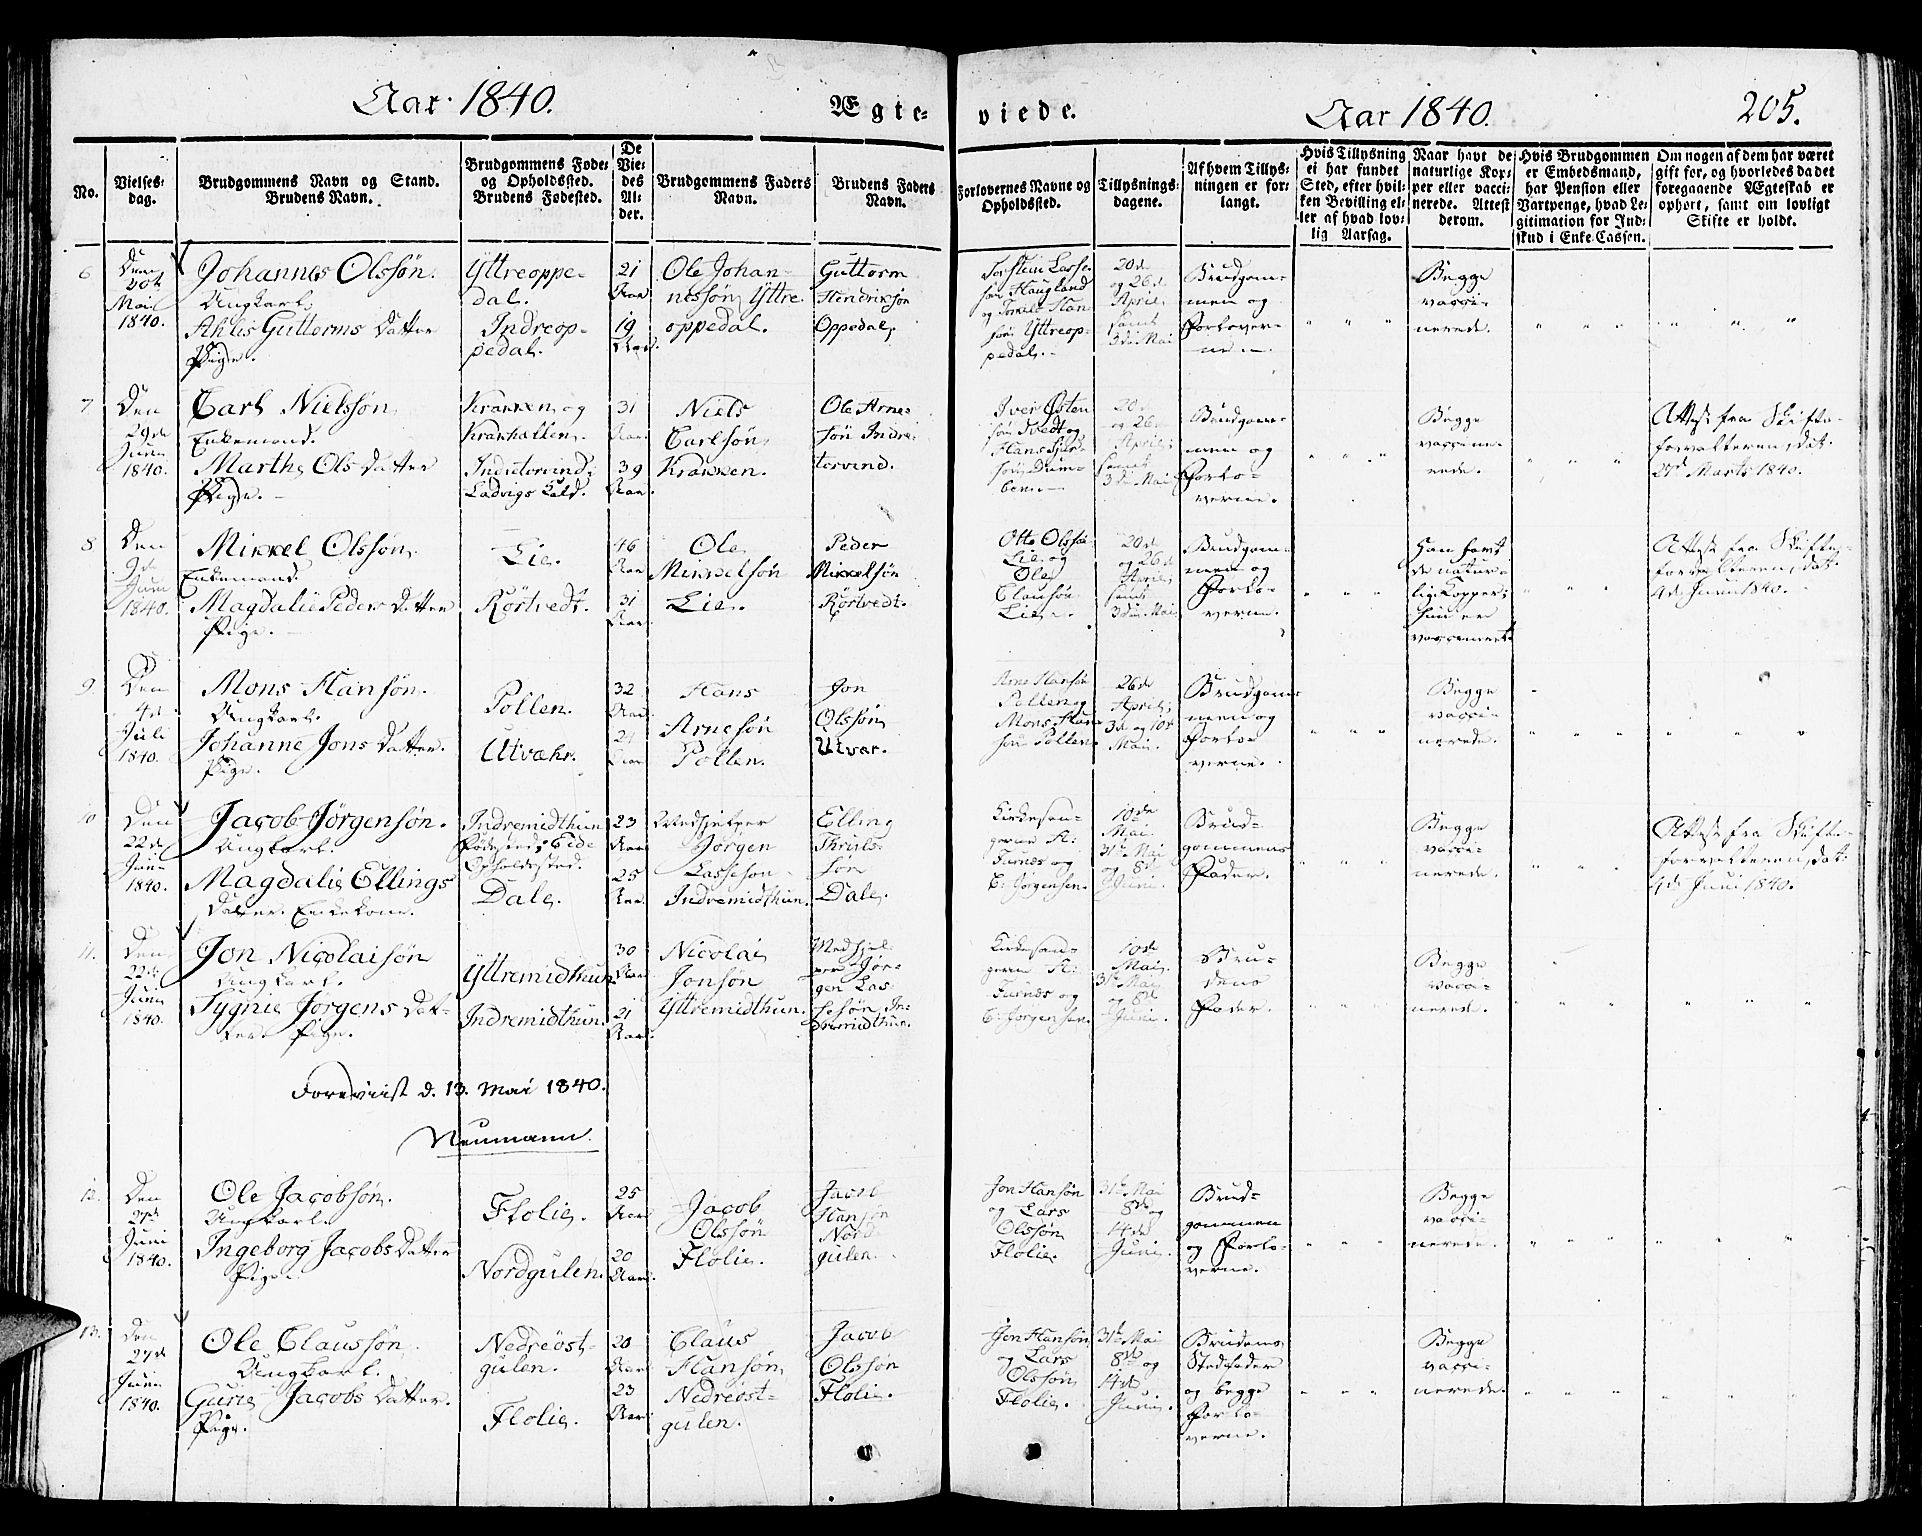 Aar 1840.
Ægte-
viede.
Aar 1840.
205.
No.
Vielses-
dag.
Brudgommens Navn og Stand.
Brudens Navn.
Brudgommens Føde-
og Opholdssted.
Brudens Fødested.
De
Vie-
des
Al-
der.
Brudgommens Faders
Navn.
Brudens Faders
Navn.
Forlovernes Navne og
Opholdssted.
Tillysnings-
dagene.
Af hvem Tillys-
ningen er for-
langt.
Hvis Tillysning
ei har fundet
Sted, efter hvil-
ken Bevilling el-
ler af hvad lov-
lig Aarsag.
Naar havt de
naturlige Kop-
per eller vacci-
nerede. Attest
derom.
Hvis Brudgommen
er Embedsmand,
har Pension eller
Vartpenge, hvad Le-
gitimation for Ind-
skud i Enke-Cassen.
Om nogen af dem har været
gift før, og hvorledes da det
foregaaende Ægteskab er
ophørt, samt om lovligt
Skifte er holdt.
6
Den
Mai
1840.
Johannes Olssøn.
Ungkarl,
Ahlis Guttorms Datter
Pige.
Yttreoppe-
dal.
Indreop-
pedal.
21
Aar
19
Aar.
Ole Johan-
nessøn Yttre-
oppedal.
Guttorm
Hendriksøn
Oppedal,
Torstein Lasse-
søn Haugland
søn Yttreop-
pedal. -
20de
og 26de
April,
samt
3die Mai
Brudgom-
men og
Forlover-
ne. -
" " "
Begge
vacci-
nerede.
" " "
" " "
7
Den
29de
Juni
1840.
Carl Nielssøn,
Enkemand.
Marthe Ols Datter
Pige. -
Krakken og
Krakhallen,
Indretorvind,
Ladvigs Kald.
31
Aar.
39
Aar.
Niels
Carlsøn,
Krakken.
Ole Arne-
søn Indre-
torvind.
Iver Østen-
søn Tvedt og
20de
og 26de
April,
samt
3die Mai
Brudgom-
men og
Forlo-
verne.
" " "
Begge
vaccine-
rede.
" " "
Attest fra Skifte-
forvalteren, dat.
Marts 1840.
8
Den
9de
Juni
1840.
Mikkel Olssøn,
Enkemand.
Magdalie Peders Datter
Pige. -
Lie.
Rörtvedt.
46
Aar
31
Aar.
Ole
Mikkelsøn
Lie.
Peder
Mikkelsøn
Rörtvedt.
Otte Olssøn
Lie og
Ole
Claussøn
Lie. -
20de
og 26de
April,
samt
3die Mai
Brudgom-
men og
Forlo-
verne.
" " "
Han havt
de natur-
lig Kopper;
hun er
vaccineret.
" " "
Attest fra Skifte-
forvalteren, dat.
4de Juni 1840.
9.
Den
4de
Juli
1840.
Mons Hansøn.
Ungkarl.
Johanne Jons Datter.
Pige.
Pollen.
Utvæhr.
32
Aar.
24
Aar
Hans
Arnesøn
Pollen.
Jon
Olssøn
Utvær.
Arne Hansøn
Pollen og
Mons Han-
søn Pollen
26de
April,
3die og 10de
Mai.
Brudgom-
men og
Forlo-
verne.
" " "
Begge
vacci-
nerede.
" " "
" " "
10
Den
22de
Juni
1840.
Jacob Jörgensøn.
Ungkarl.
Magdalie Ellings
Datter. Enkekone.
Indremidthun
Fødested, Eide
Opholdssted.
Dale,
23
Aar.
25
Aar.
Medhjelper
Jörgen
Lassesøn
Indremidthun.
Elling
Thruls-
søn
Dale.
Kirkesan-
geren A:
Furnes og
C: Jörgensen.
10de
Mai
31te Mai
og 8de
Juni.
Brud-
gommens
Fader.
" " "
Begge
vacci-
nerede.
" " "
Attest fra Skifte-
forvalteren, dat.
4de Juni 1840.
11.
Den
22de
Juni
1840.
Jon Nicolaisøn
Ungkarl.
Sygnie Jörgens Dat-
ter. Pige.
Yttremidthun.
Indremidthun.
30
Aar.
21
Aar.
Nicolai
Jonsøn
Yttremidthun.
Medhjel-
per Jör-
gen Las-
sesøn, In-
dremidthun.
Kirkesan-
geren A:
Furnæs og
C: Jörgensen.
10de
Mai.
31te Mai
og 8de
Juni.
Bru-
dens
Fader.
" " "
Begge
vacci-
nerede.
" " "
" " "
Foreviist d. 13. Mai 1840.
Neumann.
12.
Den
27de
Juni
1840.
Ole Jacobsøn.
Ungkarl.
Ingeborg Jacobs Datter
Pige.
Flolie.
Nordgulen.
25
Aar
20
Aar.
Jacob
Olssøn
Flolie.
Jacob
Hansøn
Nord-
gulen.
Jon Hansøn
og Lars
Olssøn
Flolie.
31te Mai
8de og
14de
Juni.
Brud-
gommen
og Forlo-
verne.
" " "
Begge
vacci-
nerede.
" " "
" " "
13.
Den
27de
Juni
1840.
Ole Claussøn,
Ungkarl.
Gurie Jacobs Datter.
Pige.
Nedreöst-
gulen.
Flolie.
20
Aar.
23
Aar.
Claus
Hansøn,
Nedreöst-
gulen.
Jacob
Olssøn
Flolie.
Jon Hansøn,
og Lars
Olssøn,
Flolie.
31te Mai
8de og
14de
Juni.
Brudens
Stedfader
og begge
Forlo-
verne.
" " "
Begge
vacci-
nerede.
" " "
" " "